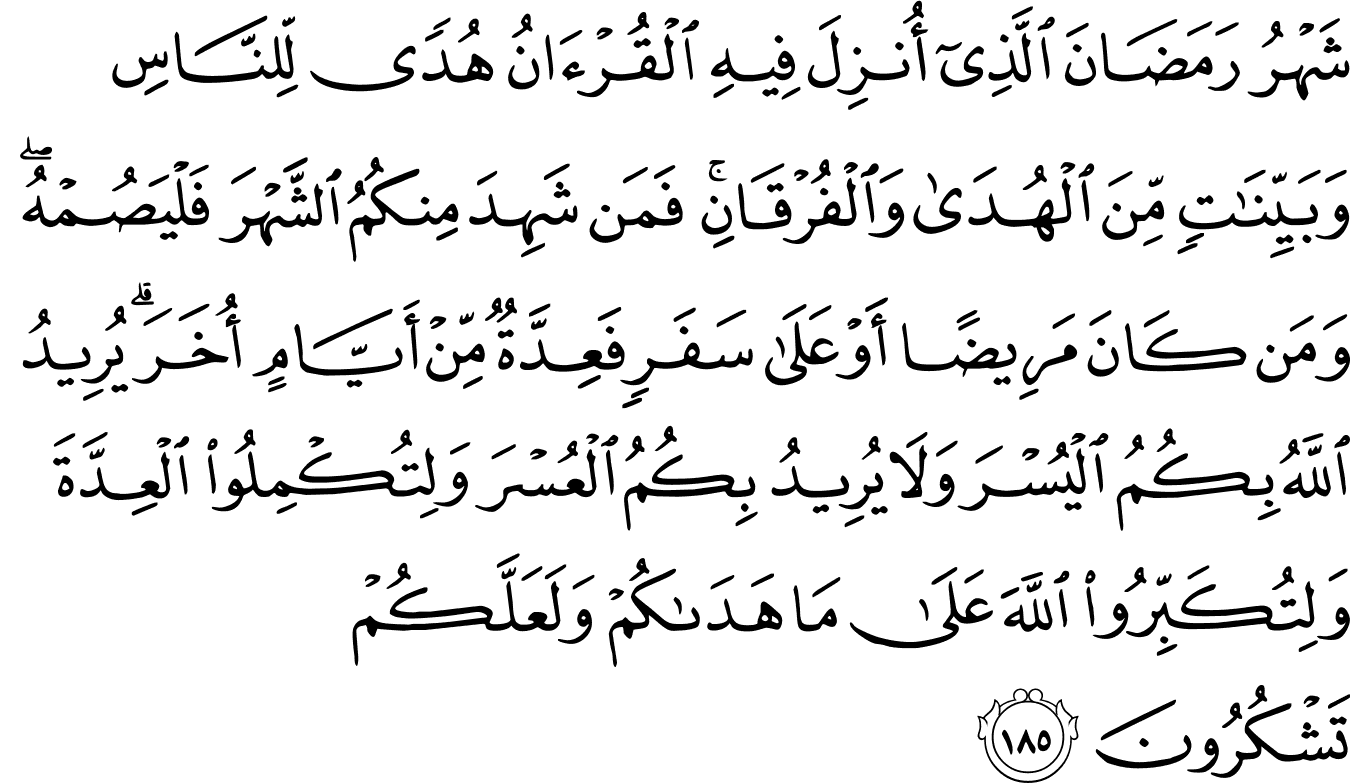 شَهْرُ رَمَضَانَ ٱلَّذِىٓ أُنزِلَ فِيهِ ٱلْقُرْءَانُ هُدًى لِّلنَّاسِ
وَبَيِّنَـٰتٍ مِّنَ ٱلْهُدَىٰ وَٱلْفُرْقَانِ ۚ فَمَن شَهِدَ مِنكُمُ ٱلشَّهْرَ فَلْيَصُمْهُ ۖ
وَمَن كَانَ مَرِيضًا أَوْ عَلَىٰ سَفَرٍ فَعِدَّةٌ مِّنْ أَيَّامٍ أُخَرَ ۗ يُرِيدُ
ٱللَّهُ بِكُمُ ٱلْيُسْرَ وَلَا يُرِيدُ بِكُمُ ٱلْعُسْرَ وَلِتُكْمِلُوا۟ ٱلْعِدَّةَ
وَلِتُكَبِّرُوا۟ ٱللَّهَ عَلَىٰ مَا هَدَىٰكُمْ وَلَعَلَّكُمْ
تَشْكُرُونَ ١٨٥